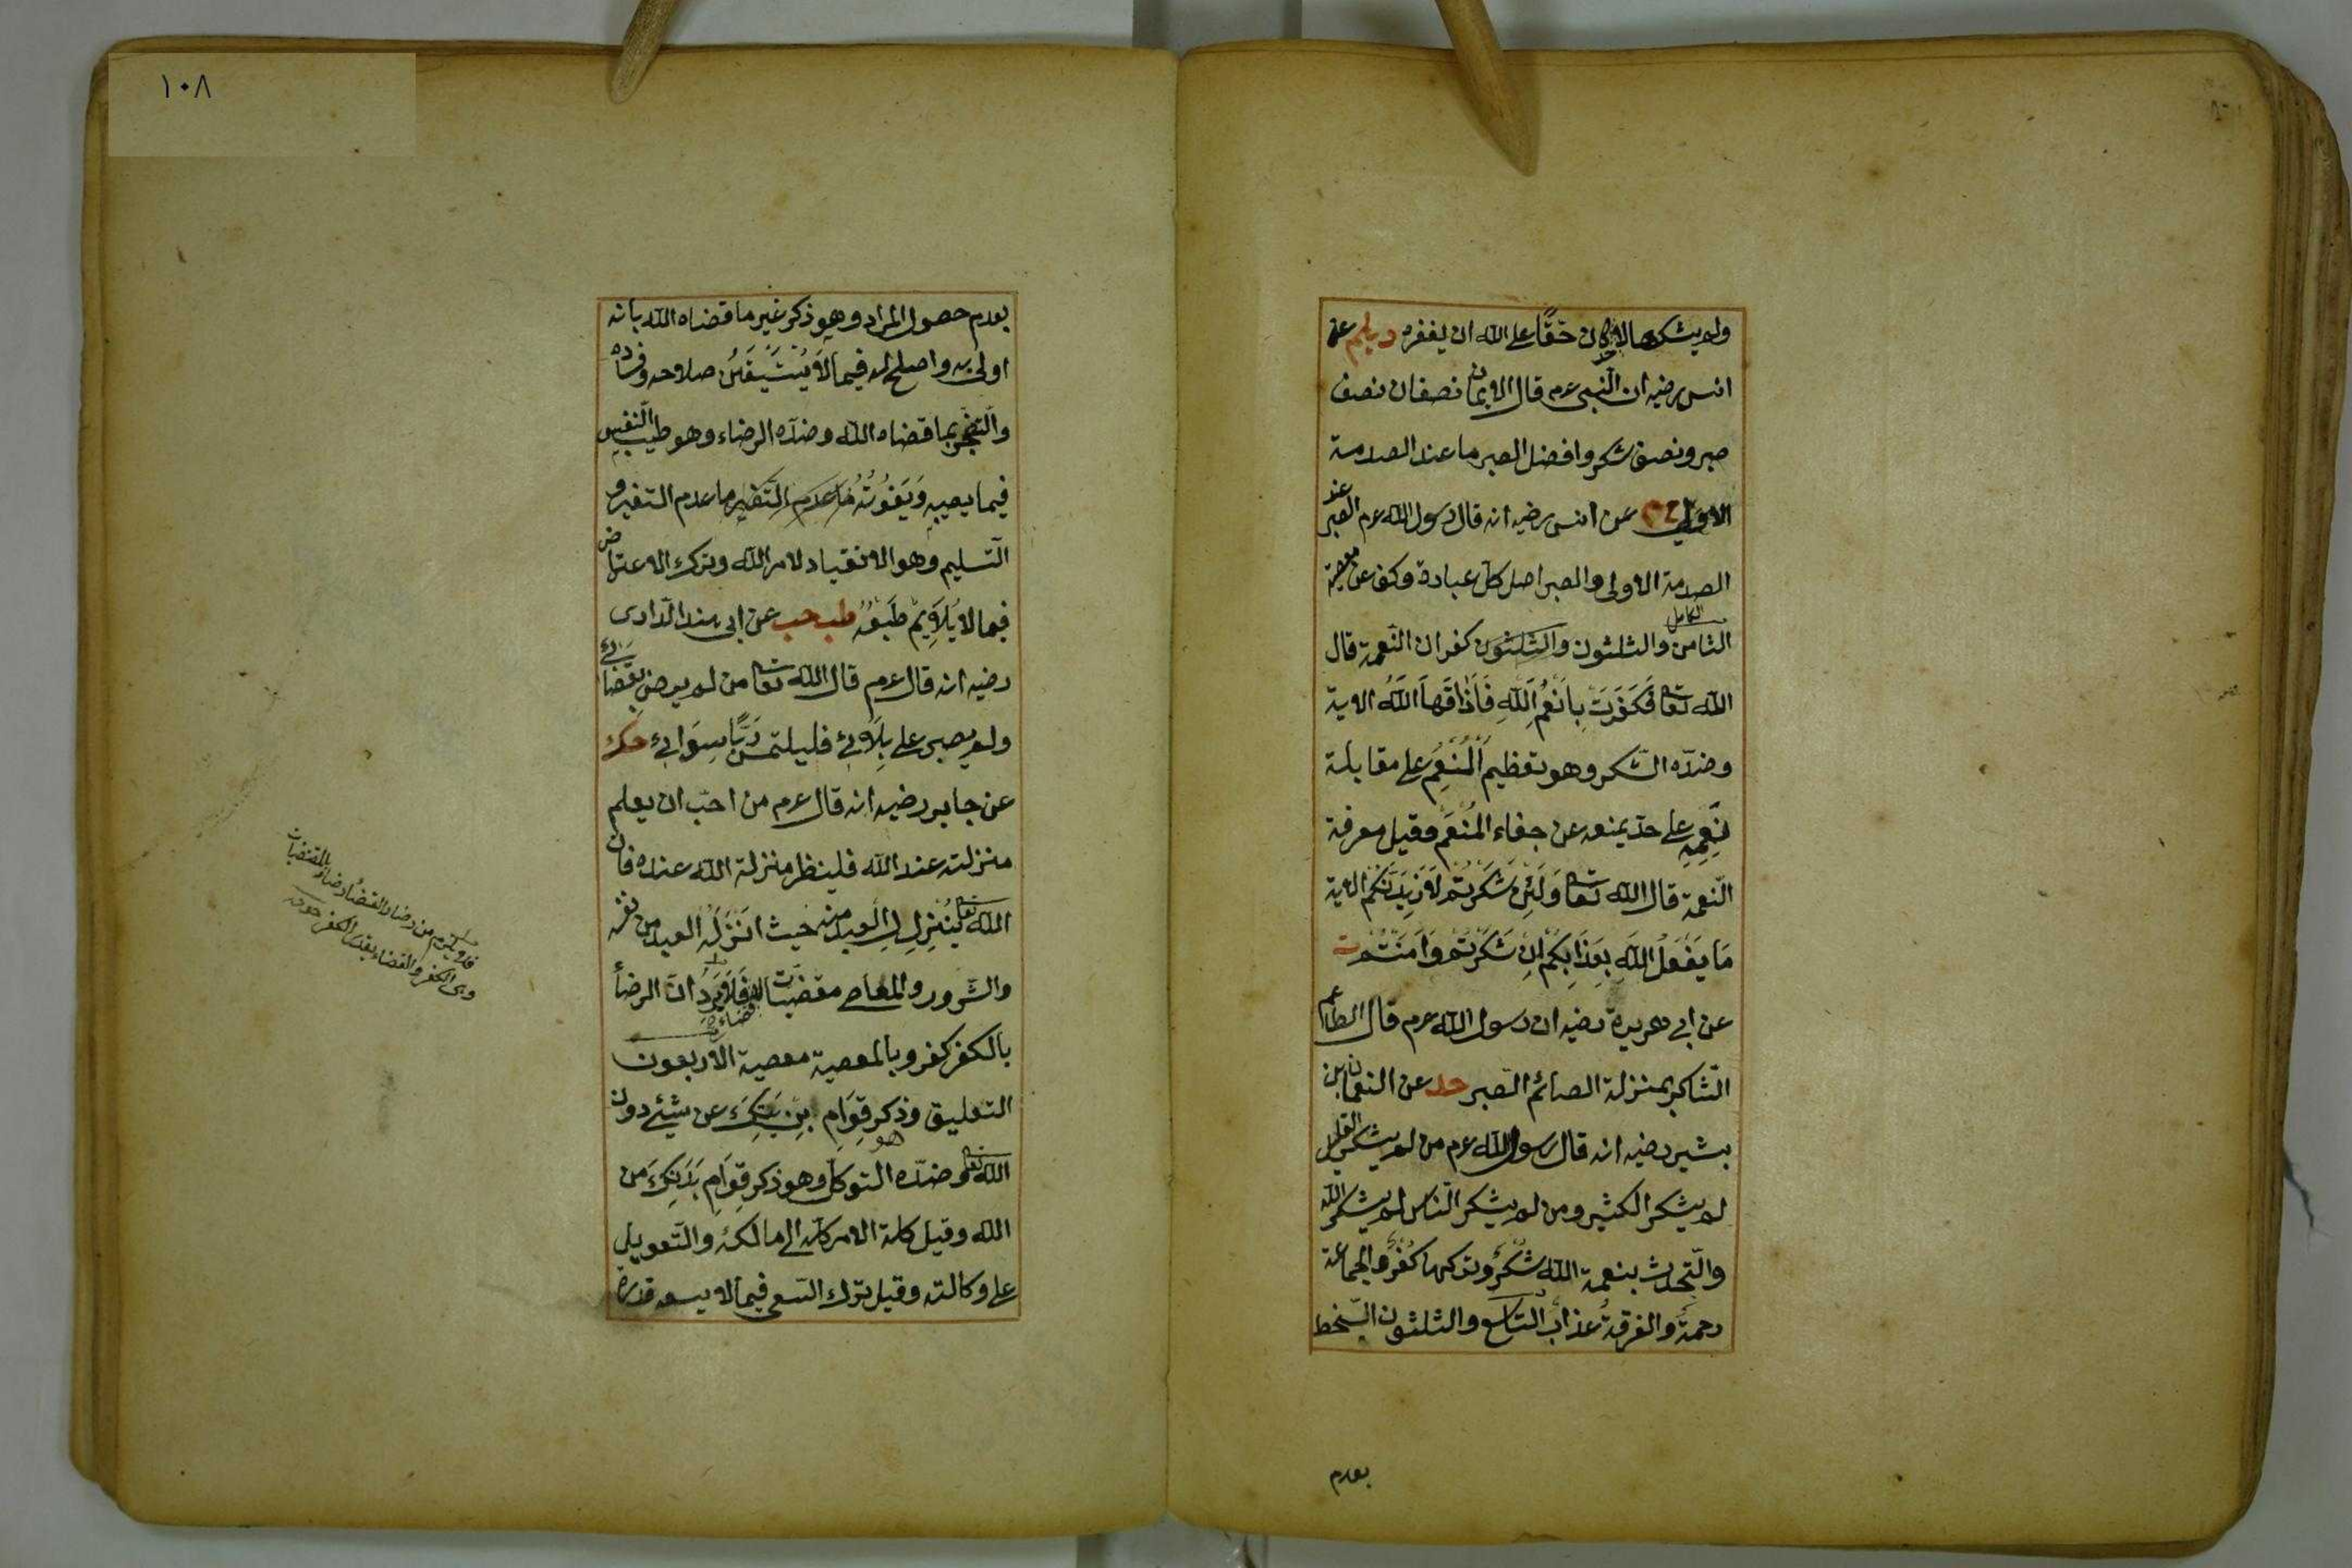 ولم يشكها لاحد كان حقًّا على الله ان يغفره ديلم عن
انس رضيه ان النبى عم قال الايمان نصفان نصف
صبر ونصف شكر وافضل الصبر ما عند الصدمة
الاولى عن انس رضيه انه قال رسول الله عم الصبر عند
الصدمة الاولى والصبر اصل كل عبادة وكف عن معصية
الكامل
الثامن والثلثون والثلثون كفران النعمة قال
الله تعا فَكَفَرَتْ بِاَنْعُمِ اللّٰهِ فَاَذَاقَهَا اللّٰهُ الاية
وضدّه الشكر وهو تعظيم المُنْعِم على مقابلة
نِعَمِهِ على حدّ يمنعه عن جفاء المُنْعِم وقيل معرفة
النّعمة قال الله تعا وَلَئِنْ شَكَرْتُمْ لَاَزِيدَنَّكُمْ الاية
مَا يَفْعَلُ اللّٰهُ بِعَذَابِكُمْ اِنْ شَكَرْتُمْ وَاٰمَنْتُمْ ت
عن ابى هريرة رضيه ان رسول الله عم قال الطاعم
الشّاكر بمنزلة الصائم الصبر حد عن النعمان بن
بشير رضيه انه قال رسول الله عم من لم يشكر القليل
لم يشكر الكثير ومن لم يشكر الناس لم يشكر الله
والتحدث بنعمة الله شكرٌ وتركها كُفْرٌ والجماعة
رحمةٌ والفرقةُ عذاب التاسع والثلثون السّخط
بعدم
١٠٨
بعدم حصول المراد وهو ذكر غير ما قضاه الله بانه
اولى به واصلح له فيما لا يُتَيَقَّنُ صلاحه وفساده
والتضجّر بما قضاه الله وضدّه الرضاء وهو طيب النفس
فيما يصيبه وَيَفُوتُهُ مَا عدم التّغير ما عدم التغير و
التّسليم وهو الانقياد لامر الله وترك الاعتراض
فيما لا يُلَايِمُ طَبْعَهُ طب حب عن ابى هند الدّارى
رضيه انه قال عم قال الله تعا من لم يرض بقضائى
ولم يصبر على بلائى فليلتمس رَبًّا سِوَائى حك
عن جابر رضيه انه قال عم من احبّ ان يعلم
منزلته عند الله فلينظر منزلة الله عنده فان
الله تعا يُنْزِلُ العبد منه حيث اَنْزَلَهُ العبد من نفسه
والشّرور والمعاصى مقضيات لا قضاء فَلَا يَرِدُ انّ الرضاء
بالكفر كفر وبالمعصية معصية الاربعون
التعليق وذكر قِوَامِ بَدَنِكَ عن شيئ دون
الله تعا وضدّه التوكل وهو ذكر قِوَامِ بَدَنِكَ من
الله وقيل كلة الامر كله الى مالكه والتّعويل
على وكالته وقيل ترك السّعى فيما لا يسعه قدرة
فلا يلزم من رضاء القضاء رضاء المقضيات